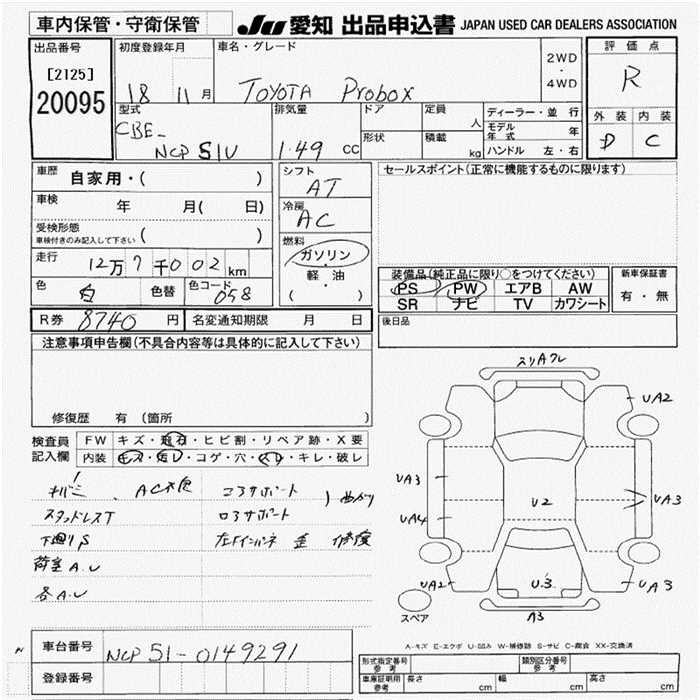 車内保管・守衛保管
JU 愛知 出品申込書 JAPAN USED CAR DEALERS ASSOCIATION
出品番号
[2125]
20095
初度登録年月
18 11月
車名・グレード
TOYOTA Probox
2WD
・
4WD
評価点
R
外装 内装
D C
型式
CBE-
NCP51V
排気量
1.49 cc
ドア
形状
定員
人
積載
kg
ディーラー・並行
モデル年式 年
ハンドル 左・右
車歴
自家用・( )
車検
年 月( 日)
受検形態
車検付きのみ記入して下さい ( )
走行
12万7千002km
色 白 色替 色コード 058
シフト
AT
冷房
AC
燃料
ガソリン
・
軽油
( )
セールスポイント(正常に機能するものに限ります)
装備品(純正品に限り○をつけてください)
PS PW エアB AW
SR ナビ TV カワシート
新車保証書
有・無
R券 8740 円
名変通知期限 月 日
後日品
注意事項申告欄(不具合内容等は具体的に記入して下さい)
修復歴 有 (箇所 )
検査員
記入欄
FW キズ・飛石・ヒビ割・リペア跡・X要
内装 キズ・汚レ・コゲ・穴・スレ・キレ・破レ
AC不良
コアサポート
スタッドレスT
ロアサポート
曲がり
下廻りS
左Fインパネ 歪 修復
荷室A.U
各A.U
スリAクレ
UA2
UA3
UA4
U2
UA3
UA2
U.3
UA3
A3
スペア
A-キズ E-エクボ U-凹み W-補修跡 S-サビ C-腐食 XX-交換済
車台番号
NCP51-0149291
登録番号
形式指定番号 参考
類別区分番号 参考
車庫証明用 参考
長さ cm 幅 cm 高さ cm